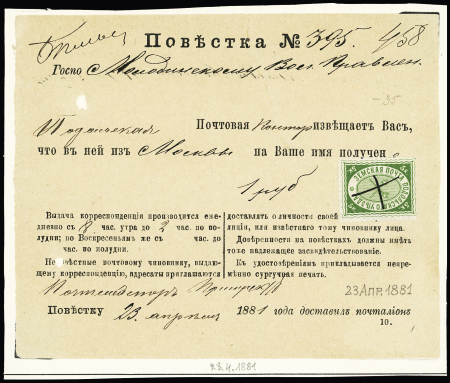 Повѣстка № 395. 458
Госпо Молодинскому Вол. Правлен.
- 35
Подольская Почтовая Контор извѣщаетъ Васъ,
что въ ней изъ Москвы на Ваше имя получено
1 руб
ЗЕМСКАЯ ПОЧТА
Выдача корреспонденціи производится еже-
дневно съ 8 час. утра до 2 час. по по-
лудни; по Воскресеньямъ же съ час. до
час. по полудни.
Не извѣстные почтовому чиновнику, выдаю-
щему корреспонденцію, адресаты приглашаются
доставлять о личности своей
полиціи, или извѣстнаго тому чиновнику лица.
Довѣренности на повѣсткахъ должны имѣть
тоже надлежащее засвидѣтельствованіе.
Къ удостовѣреніямъ прикладывается непре-
мѣнно сургучная печать.
Почтмейстеръ
23 АПР. 1881
Повѣстку 23 апрѣля 1881 года доставилъ почталіонъ
10.
23.4.1881